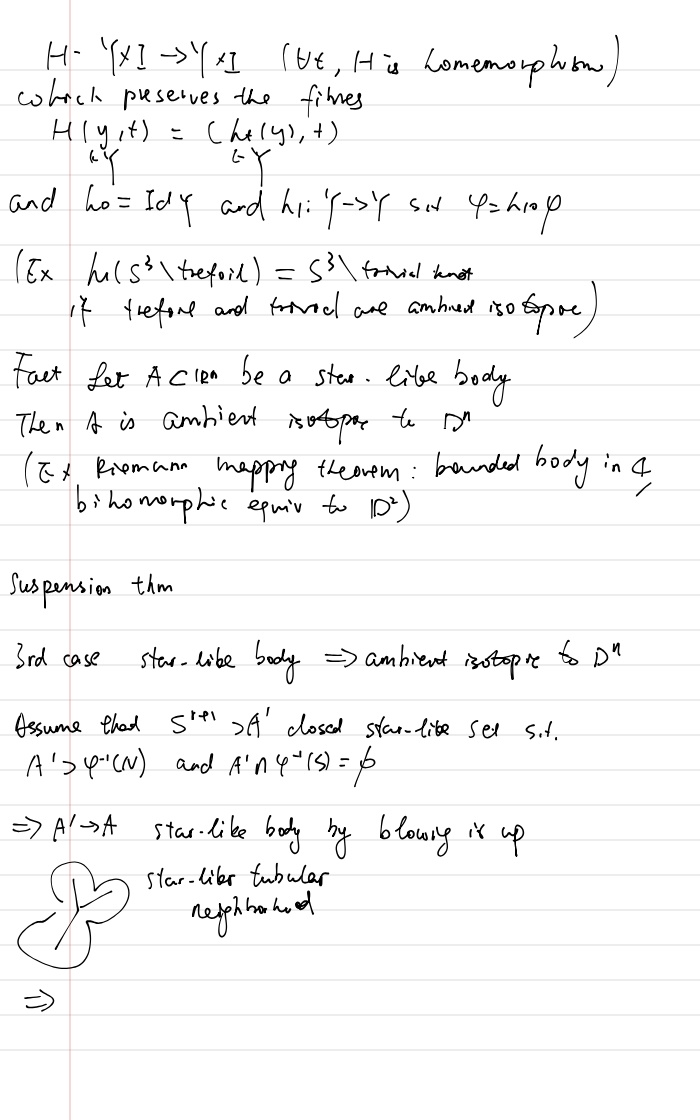 H: Y×I → Y×I (∀t, H is homemorphism)
which preserves the fibres
H(y,t) = (ht(y), t)
∈Y ∈Y
and h0 = IdY and h1: Y→Y s.t φ=h1∘φ
(Ex h1(S³\trefoil) = S³\trivial knot
if trefoil and trivial are ambient isotopic)
Fact Let A⊂ℝn be a star-like body
Then A is ambient isotopic to Dⁿ
(Ex Riemann mapping theorem: bounded body in ℂ
biholomorphic equiv to D²)
Suspension thm
3rd case star-like body ⇒ ambient isotopic to Dⁿ
Assume that Sʳ⁺¹ ⊃ A' closed star-like set s.t.
A' ⊃ φ⁻¹(N) and A' ∩ φ⁻¹(S) = ∅
⇒ A' → A star-like body by blowing it up
star-like tubular
neighborhood
⇒